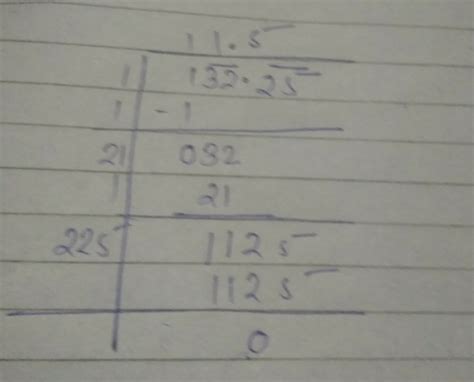 11.5
1 132.25
1 -1
21 032
1 21
225 1125
1125
0